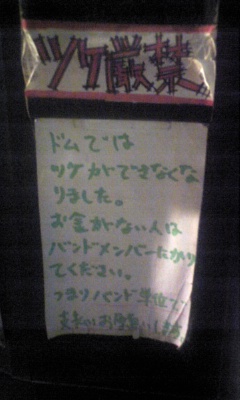 ツケ厳禁
ドムでは
ツケができなくな
りました。
お金がない人は
バンドメンバーにかり
てください。
つまりバンド単位で
お願いします